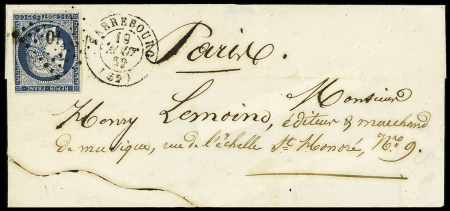 SARREBOURG
19
52
(52)
REPUB. FRANC.
Paris
Monsieur
Henry Lemoine, éditeur & marchand
de musique, rue de l'échelle St Honoré, Nro 9.